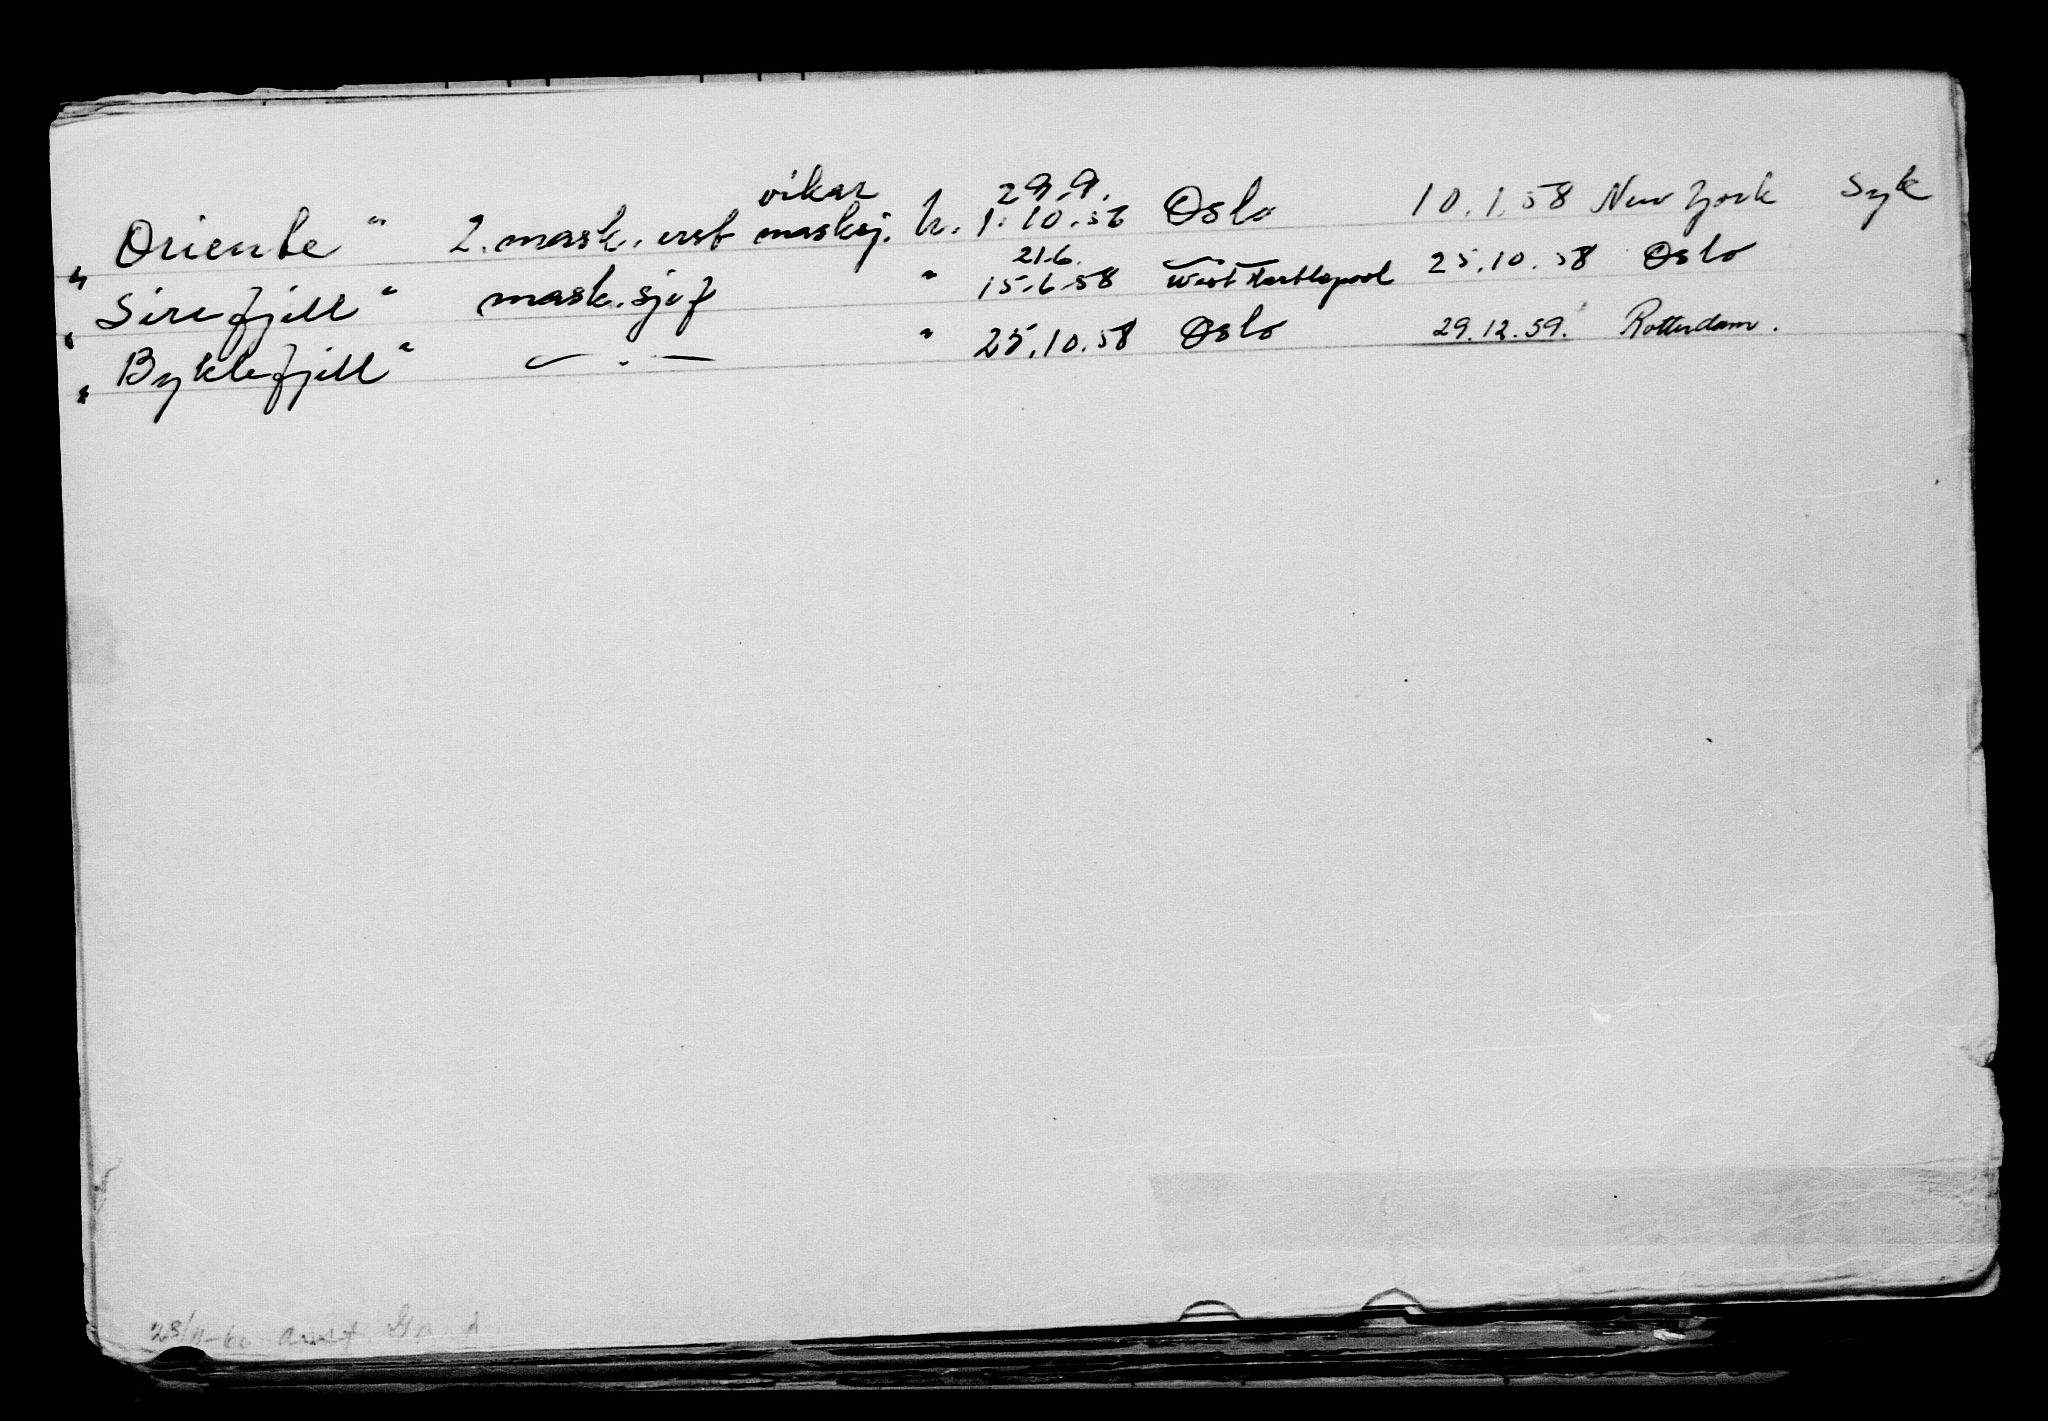 vikar 29.9.
"Oriente" 2. mask. erst masksj. h. 1.10.56 Oslo 10.1.58 New York Syk
21.6.
"Sirefjell" mask.sjef " 15.6.58 West Hartlepool 25.10.58 Oslo
"Byklefjell" — . — " 25.10.58 Oslo 29.12.59. Rotterdam.
23/11-60